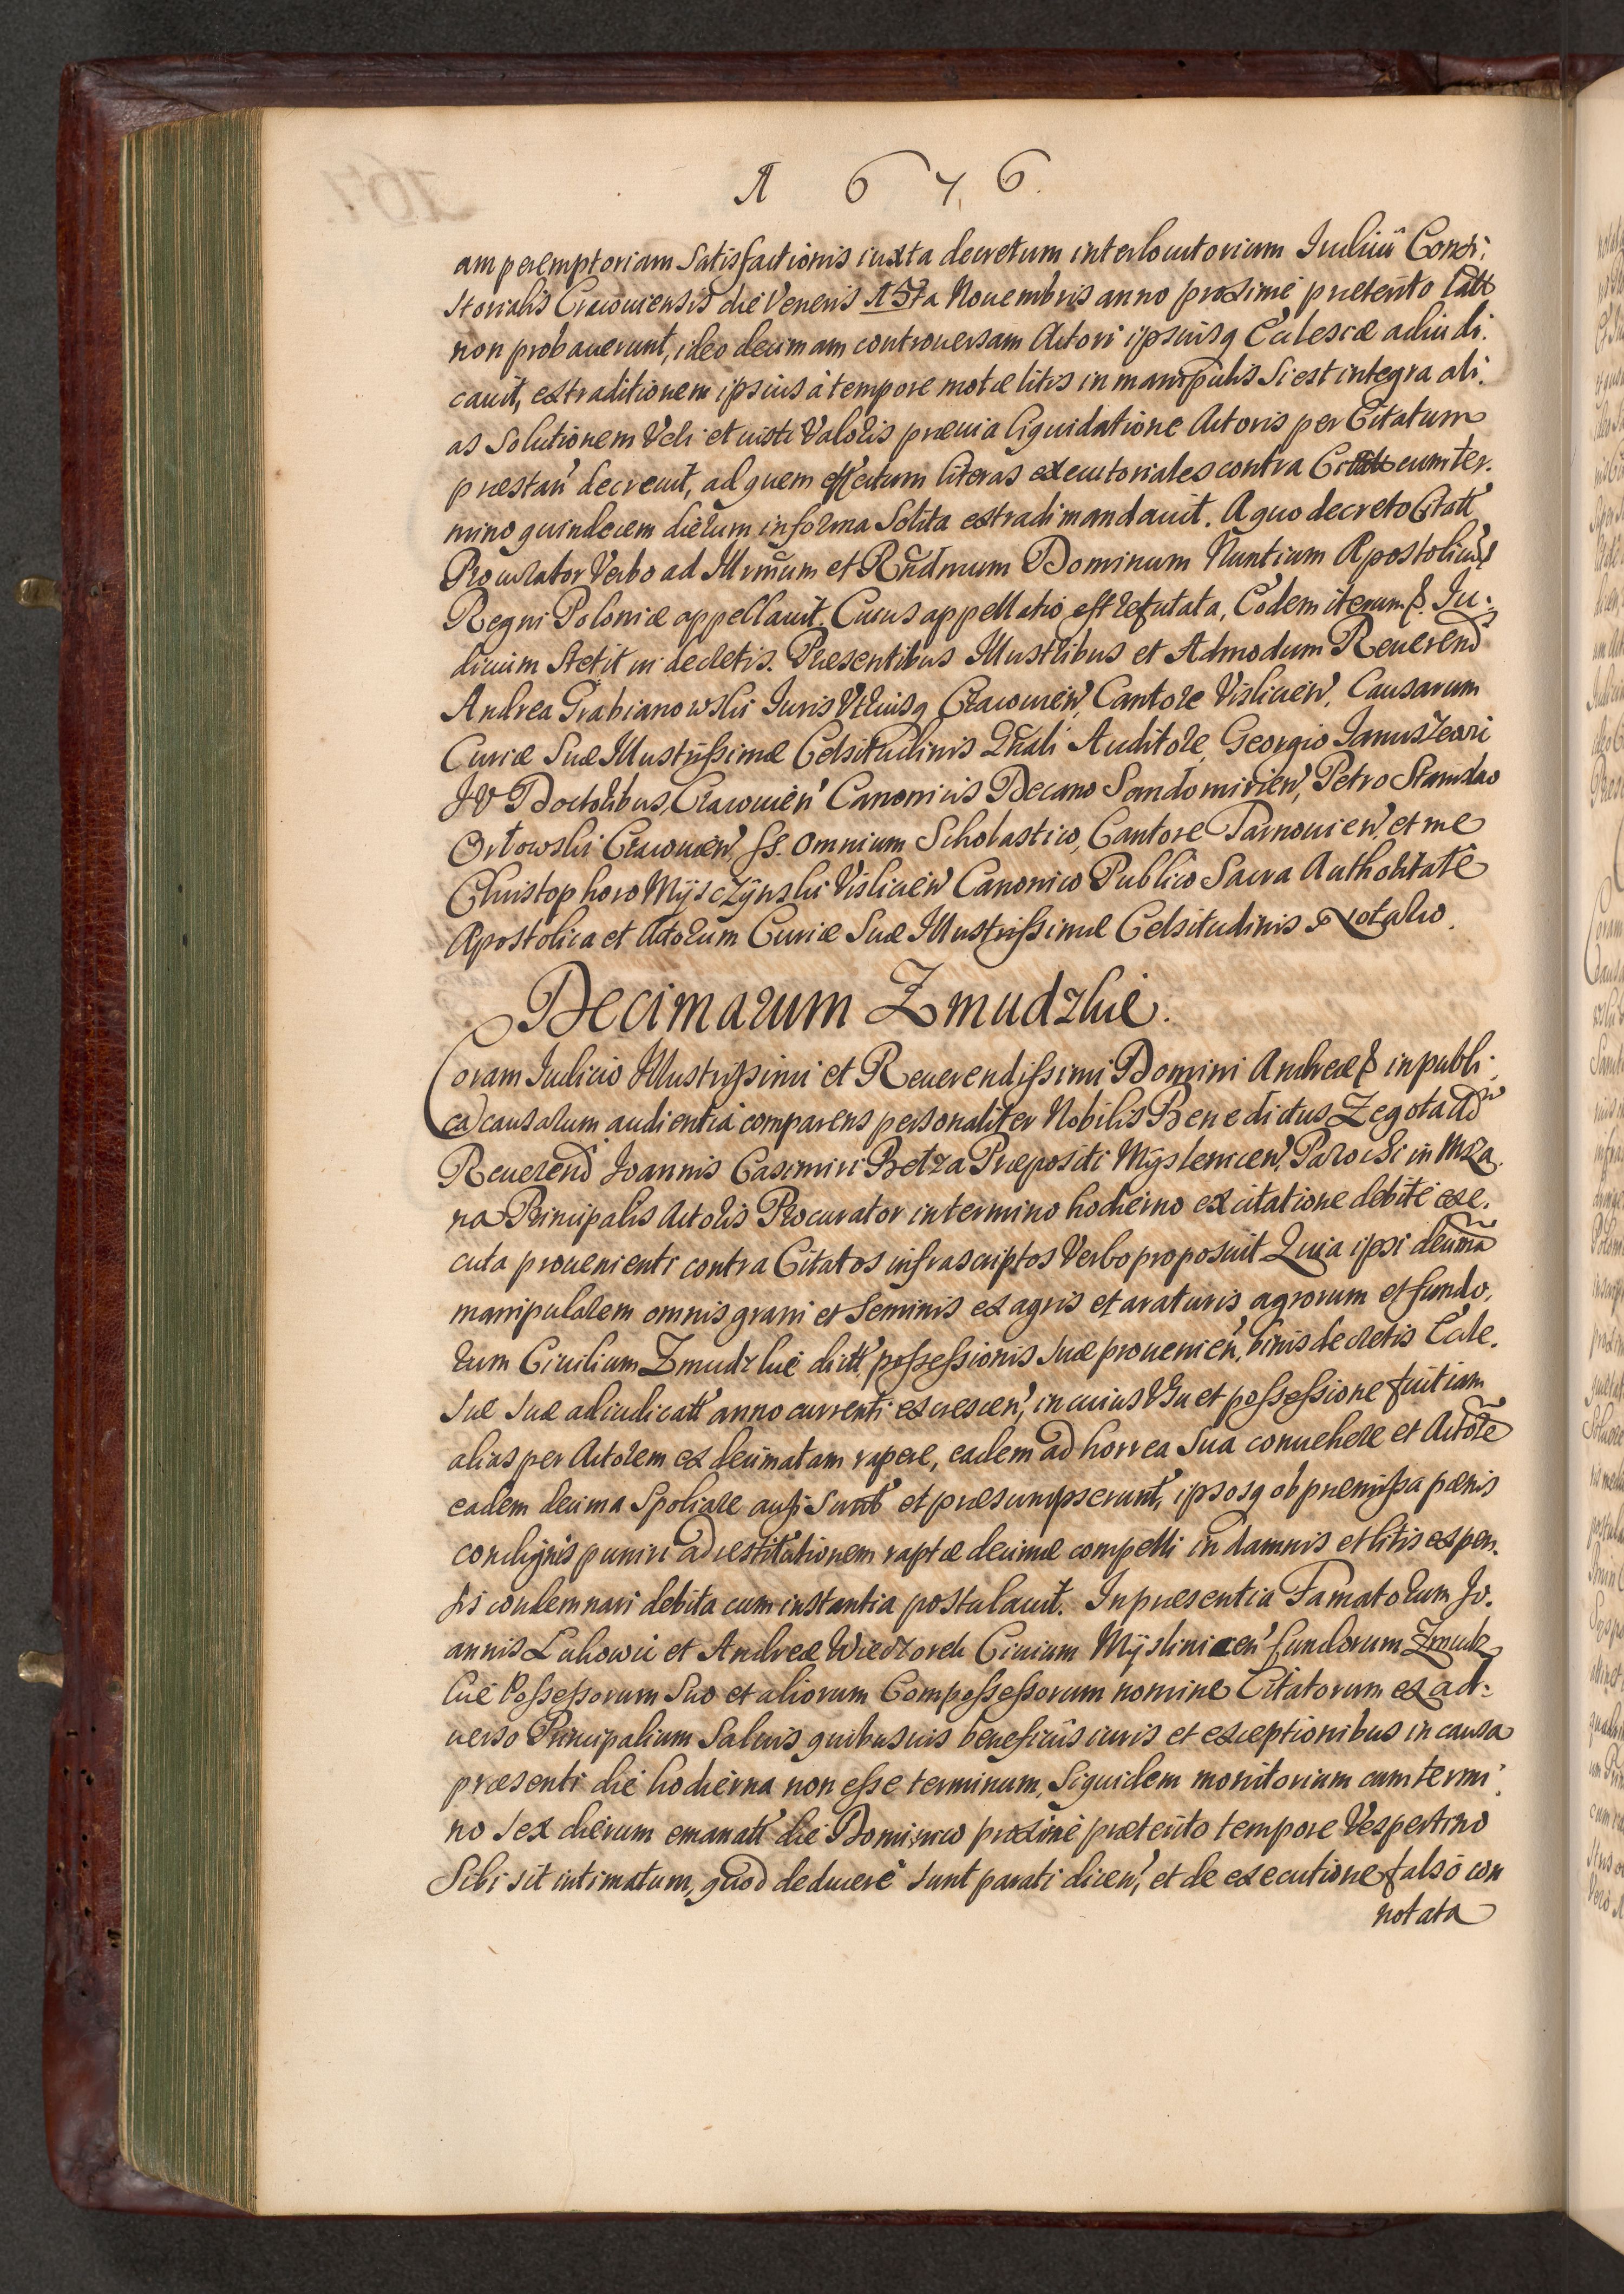 1 6 7 6.
am peremptoriam Satisfactionis iuxta decretum interlocutorium Iudicii Consi:
storialis Cracouiensis die Veneris 15ta Nouembris anno proxime praeterito latt
non probauerunt, ideo decimam controuersam Actori ipsiusq Eccłesiae adiudi:
cauit, extraditionem ipsius à tempore motae litis in manipulis si est integra ali:
as Solutionem Veri et iusti Valoris praeuia liquidatione Actoris per Citatum
praestań decreuit, ad quem effectum literas executoriales contra cum ter:
mino quindecem dierum in forma Solita extradi mandauit. A quo decreto Citatt
Procurator Verbo ad Illrmum et Rndmum Dominum Nuntium Apostolicum
Regni Poloniae appellauit. Cuius appellatio est refutata, Eodem iterum &. Iu:
dicium stetit in decretis. Praesentibus Illustribus et Admodum Reuerend
Andrea Grabianowski Iuris Vtriusq Cracouień, Cantore Visliceń, Causarum
Curiae Suae Illustrissimae Celsitudinis Gnali Auditore, Georgio Ianuszewi
IV Doctoribus, Cracouień Canonicis Decano Sandomirień, Petro Stanislao
Orłowski Cracouień SS. Omnium Scholastico, Cantore Tarnouień, et me
Christophoro Mÿsczÿnski Visliceń Canonico Publico Sacra Authoritate
Apostolica et Actorum Curiae Suae Illustrissimae Celsitudinis Notario.
Decimarum Zmudzkie.
Coram Iudicio Illustrissimi et Reuerendissimi Domini Andreae & in publi:
ca causarum audientia comparens personaliter Nobilis Benedictus Zegota Adn
Reuerend Ioannis Casimiri Betza Praepositi Mÿslenicen, Parochi in Mza
na Principalis Actoris Procurator in termino hodierno ex citatione debite exe:
cuta prouenienti contra Citatos infrascriptos Verbo proposuit Quia ipsi decima
manipularem omnis grani et Seminis ex agris et araturis agrorum et fundo:
rum Ciuilium Zmudzkie dictt possessionis suae prouenień, binis decretis Eccle:
siae suae adiudicatt anno currenti excrescen, in cuius Vsu et possessione fuit iam
alias per Actorem ex decimatam rapere, eadem ad horrea sua conuehere et Actore
eadem decima Spoliare ausi sunt et praesumpserunt, ipsosq ob praemissa paenis
condignis puniri ad restitutionem raptae decimae compelli in damnis et litis expen:
sis condemnari debita cum instantia postulauit. In praesentia Famatorum Io:
annis Lukowic et Andreae Wiedzorek Ciuium Mÿslinicen fundorum Zmudz
kie Possessorum suo et aliorum Compossessorum nomine Citatorum ex ad:
uerso Principalium Saluis quibusuis beneficiis iuris et exceptionibus in causa
praesenti die hodierna non esse terminum, Siquidem monitorium cum termi:
no sex dierum emanatt die Dominico proxime praeterito tempore Vespertino
Sibi sit intimatum, quod deducere sunt parati dicen, et de executione falso con
notata